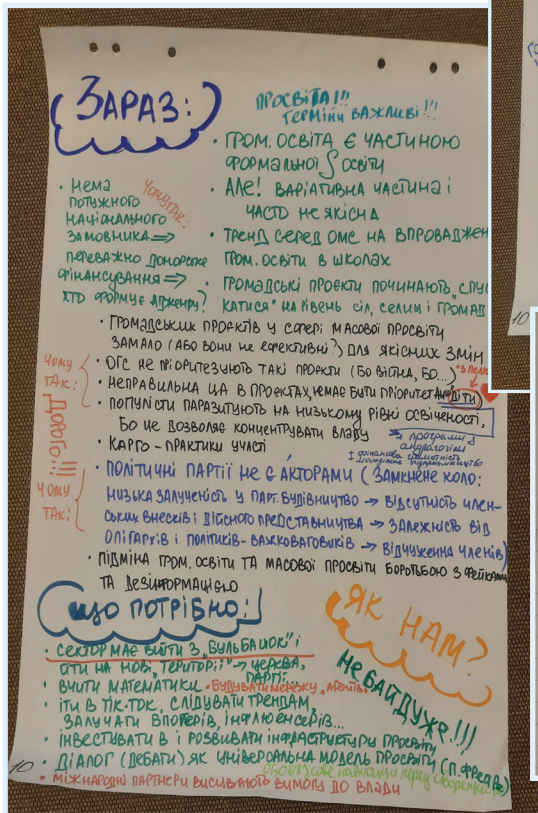 ЗАРАЗ:
ПРОСВІТА!!!
ТЕРМІНИ ВАЖЛИВІ!!!
• ГРОМ. ОСВІТА Є ЧАСТИНОЮ
ФОРМАЛЬНОЇ ОСВІТИ
• АЛЕ! ВАРІАТИВНА ЧАСТИНА І
ЧАСТО НЕ ЯКІСНА
• ТРЕНД СЕРЕД ОМС НА ВПРОВАДЖЕН
ГРОМ. ОСВІТИ В ШКОЛАХ
• ГРОМАДСЬКІ ПРОЄКТИ ПОЧИНАЮТЬ „СПУС
КАТИСЯ" НА РІВЕНЬ СІЛ, СЕЛИЩ І ГРОМАД
• НЕМА
ПОТУЖНОГО
НАЦІОНАЛЬНОГО
ЗАМОВНИКА ⇒
ПЕРЕВАЖНО ДОНОРСЬКЕ
ФІНАНСУВАННЯ ⇒
ХТО ФОРМУЄ АДЖЕНДУ?
ЧОМУ ТАК:
• ГРОМАДСЬКИХ ПРОЄКТІВ У СФЕРІ МАСОВОЇ ПРОСВІТИ
ЗАМАЛО (АБО ВОНИ НЕ ЕФЕКТИВНІ?) ДЛЯ ЯКІСНИХ ЗМІН
ЧОМУ
ТАК:
• ОГС НЕ ПРІОРИТЕЗУЮТЬ ТАКІ ПРОЄКТИ (БО ВІЙНА, БО...)
• НЕПРАВИЛЬНА ЦА В ПРОЄКТАХ, НЕМАЄ БУТИ ПРІОРИТЕТ ДІТИ
• ПОПУЛІСТИ ПАРАЗИТУЮТЬ НА НИЗЬКОМУ РІВНІ ОСВІЧЕНОСТІ,
БО ЦЕ ДОЗВОЛЯЄ КОНЦЕНТРУВАТИ ВЛАДУ
ДОРОГО!!!
→ ПРОГРАМИ З
АНДРАГОГІКИ
+ ФІНАНСОВА ГРАМОТНІСТЬ
ПІДПРИЄМНИЦТВО
• КАРГО - ПРАКТИКИ УЧАСТІ
ЧОМУ
ТАК:
• ПОЛІТИЧНІ ПАРТІЇ НЕ Є АКТОРАМИ (ЗАМКНЕНЕ КОЛО:
НИЗЬКА ЗАЛУЧЕНІСТЬ У ПАРТ. БУДІВНИЦТВО → ВІДСУТНІСТЬ ЧЛЕН-
СЬКИХ ВНЕСКІВ І ДІЙСНОГО ПРЕДСТАВНИЦТВА → ЗАЛЕЖНІСТЬ ВІД
ОЛІГАРХІВ І ПОЛІТИКІВ-ВАЖКОВАГОВИКІВ → ВІДЧУЖЕННЯ ЧЛЕНІВ)
• ПІДМІНА ГРОМ. ОСВІТИ ТА МАСОВОЇ ПРОСВІТИ БОРОТЬБОЮ З ФЕЙКАМИ
ТА ДЕЗІНФОРМАЦІЄЮ
ЩО ПОТРІБНО:
ЯК НАМ?
НЕ БАЙДУЖЕ!!!
• СЕКТОР МАЄ ВИЙТИ З „БУЛЬБАШОК" І
ЙТИ НА НОВІ „ТЕРИТОРІЇ" → ЦЕРКВА,
ПАРТІЇ...
• ВЧИТИ МАТЕМАТИКИ • БУДУВАТИ МЕРЕЖУ „АГЕНТІВ"
• ІТИ В ТІК-ТОК, СЛІДУВАТИ ТРЕНДАМ,
ЗАЛУЧАТИ ВЛОГЕРІВ, ІНФЛЮЕНСЕРІВ...
• ІНВЕСТУВАТИ В І РОЗВИВАТИ ІНФРАСТРУКТУРУ ПРОСВІТИ
• ДІАЛОГ (ДЕБАТИ) ЯК УНІВЕРСАЛЬНА МОДЕЛЬ ПРОСВІТИ (П. ФРЕЙРЕ)
ОБОВ'ЯЗКОВЕ НАВЧАННЯ ПЕРЕД
• МІЖНАРОДНІ ПАРТНЕРИ ВИСУВАЮТЬ ВИМОГИ ДО ВЛАДИ
10
10